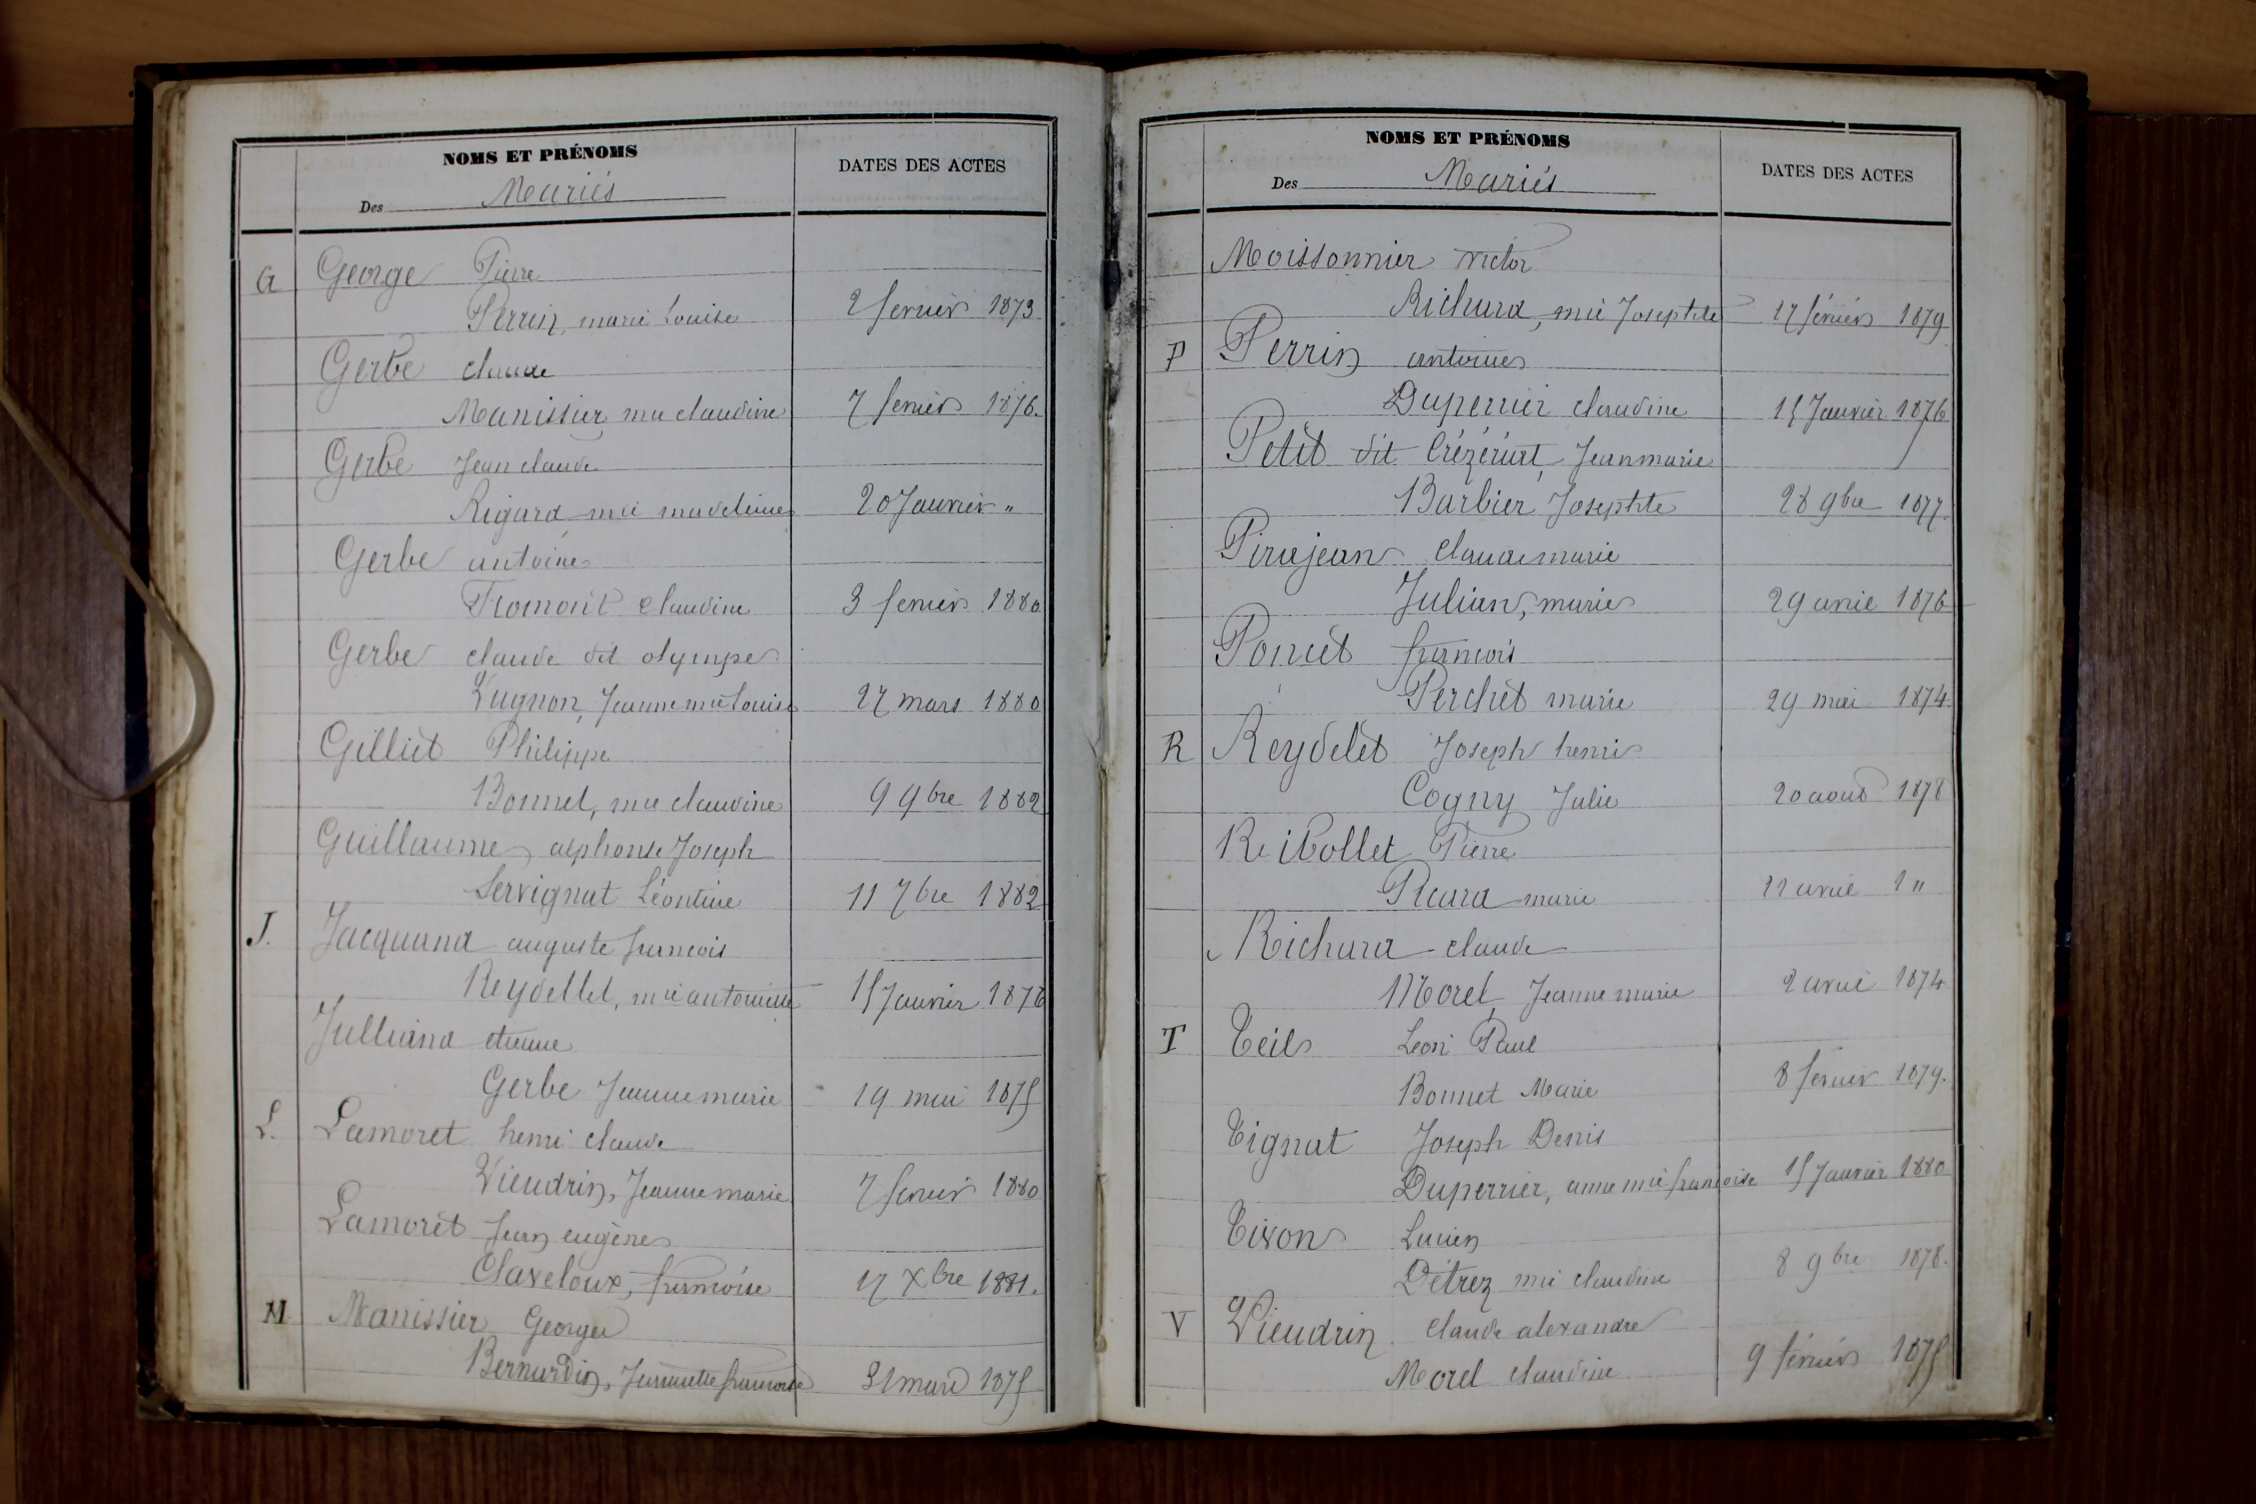 NOMS ET PRÉNOMS
DATES DES ACTES
Des Mariés
G George Pierre
Perrin, marie Louise 2 fevrier 1873
Gerbe claude
Manissier mie claudine 7 fevrier 1876.
Gerbe Jean claude
Rigard mie madeleine 20 Janvier "
Gerbe antoine
Fromont claudine 3 fevrier 1880
Gerbe claude dit olympe
Vugnon, Jeanne mie Louise 27 mars 1880
Gilliet Philippe
Bonnet, mie claudine 9 9bre 1882
Guillaume alphonse Joseph
Servignat Léontine 11 7bre 1882
J. Jacquand auguste francois
Reydellet, mie antoinette 15 Janvier 1876
Julliand etienne
Gerbe Jeanne marie 19 mai 1875
L. Lamoret henri claude
Vieudrin, Jeanne marie 7 fevrier 1880
Lamoret Jean eugène
Claveloux, francoise 17 Xbre 1881.
M. Manissier Georges
Bernardin, Jeannette francoise 31 mars 1875
NOMS ET PRÉNOMS
DATES DES ACTES
Des Mariés
Moissonnier victor
Richard, mie Josephte 17 février 1879
P Perrin antoine
Duperrier claudine 15 Janvier 1876
Petit dit Crézériat, Jean marie
Barbier, Josephte 28 9bre 1877.
Pirajean claude marie
Julian, marie 29 avril 1876
Poncet francois
Perchet marie 29 mai 1874.
R Reydelet Joseph henri
Cogny Julie 20 aout 1878
Reibollet Pierre
Picard marie 11 avril 1 "
Richard claude
Morel, Jeanne marie 2 avril 1874
T Teil Léon Paul
Bonnet Marie 8 fevrier 1879.
Tignat Joseph Denis
Duperrier, anne mie francoise 15 Janvier 1880
Tixon Lucien
Détrez mie claudine 8 9bre 1878.
V Vieudrin claude alexandre
Morel claudine 9 février 1875